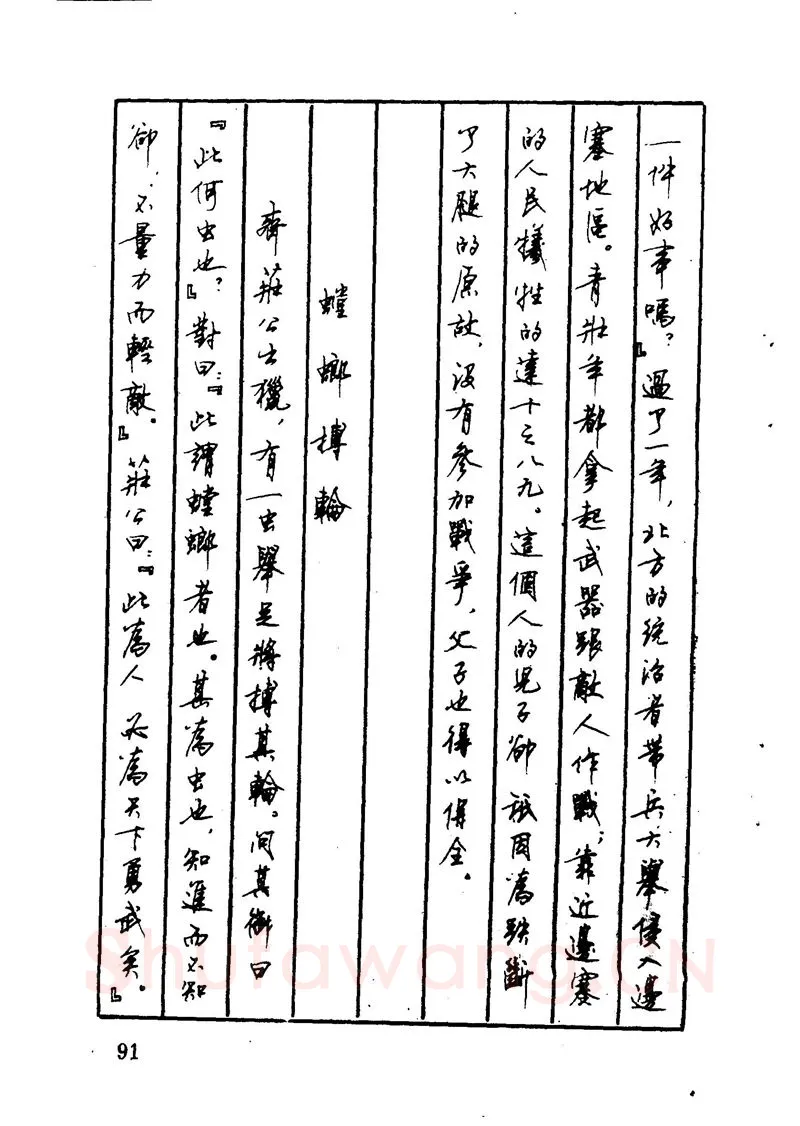 一件好事嗎？』過了一年，北方的統治者帶兵大舉侵入邊
塞地區。青壯年都拿起武器跟敵人作戰；靠近邊塞
的人民犧牲的達十之八九。這個人的兒子卻祇因為跌斷
了大腿的原故，没有參加戰爭，父子也得以保全。
螳螂搏輪
齊莊公出獵，有一虫舉足將搏其輪。问其御曰
『此何虫也？』對曰：『此謂螳螂者也。其為虫也，知進而不知
卻，不量力而輕敵。』莊公曰：『此為人 必為天下勇武矣。』
91
Shufawang.CN